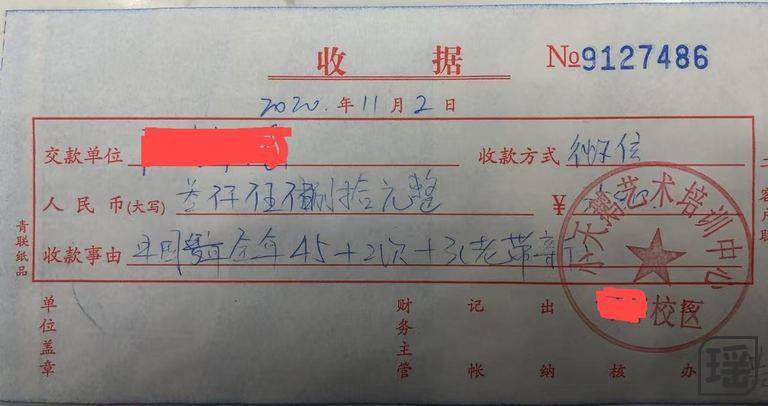 收据 №9127486
2020.年11月2日
交款单位 收款方式 微信
人民币(大写) 叁仟伍佰捌拾元整 ¥
收款事由 45+2次+3(老带新)
小天鹅艺术培训中心
校区
单位盖章 财务主管 记帐 出纳 核办
青联纸品
瑶